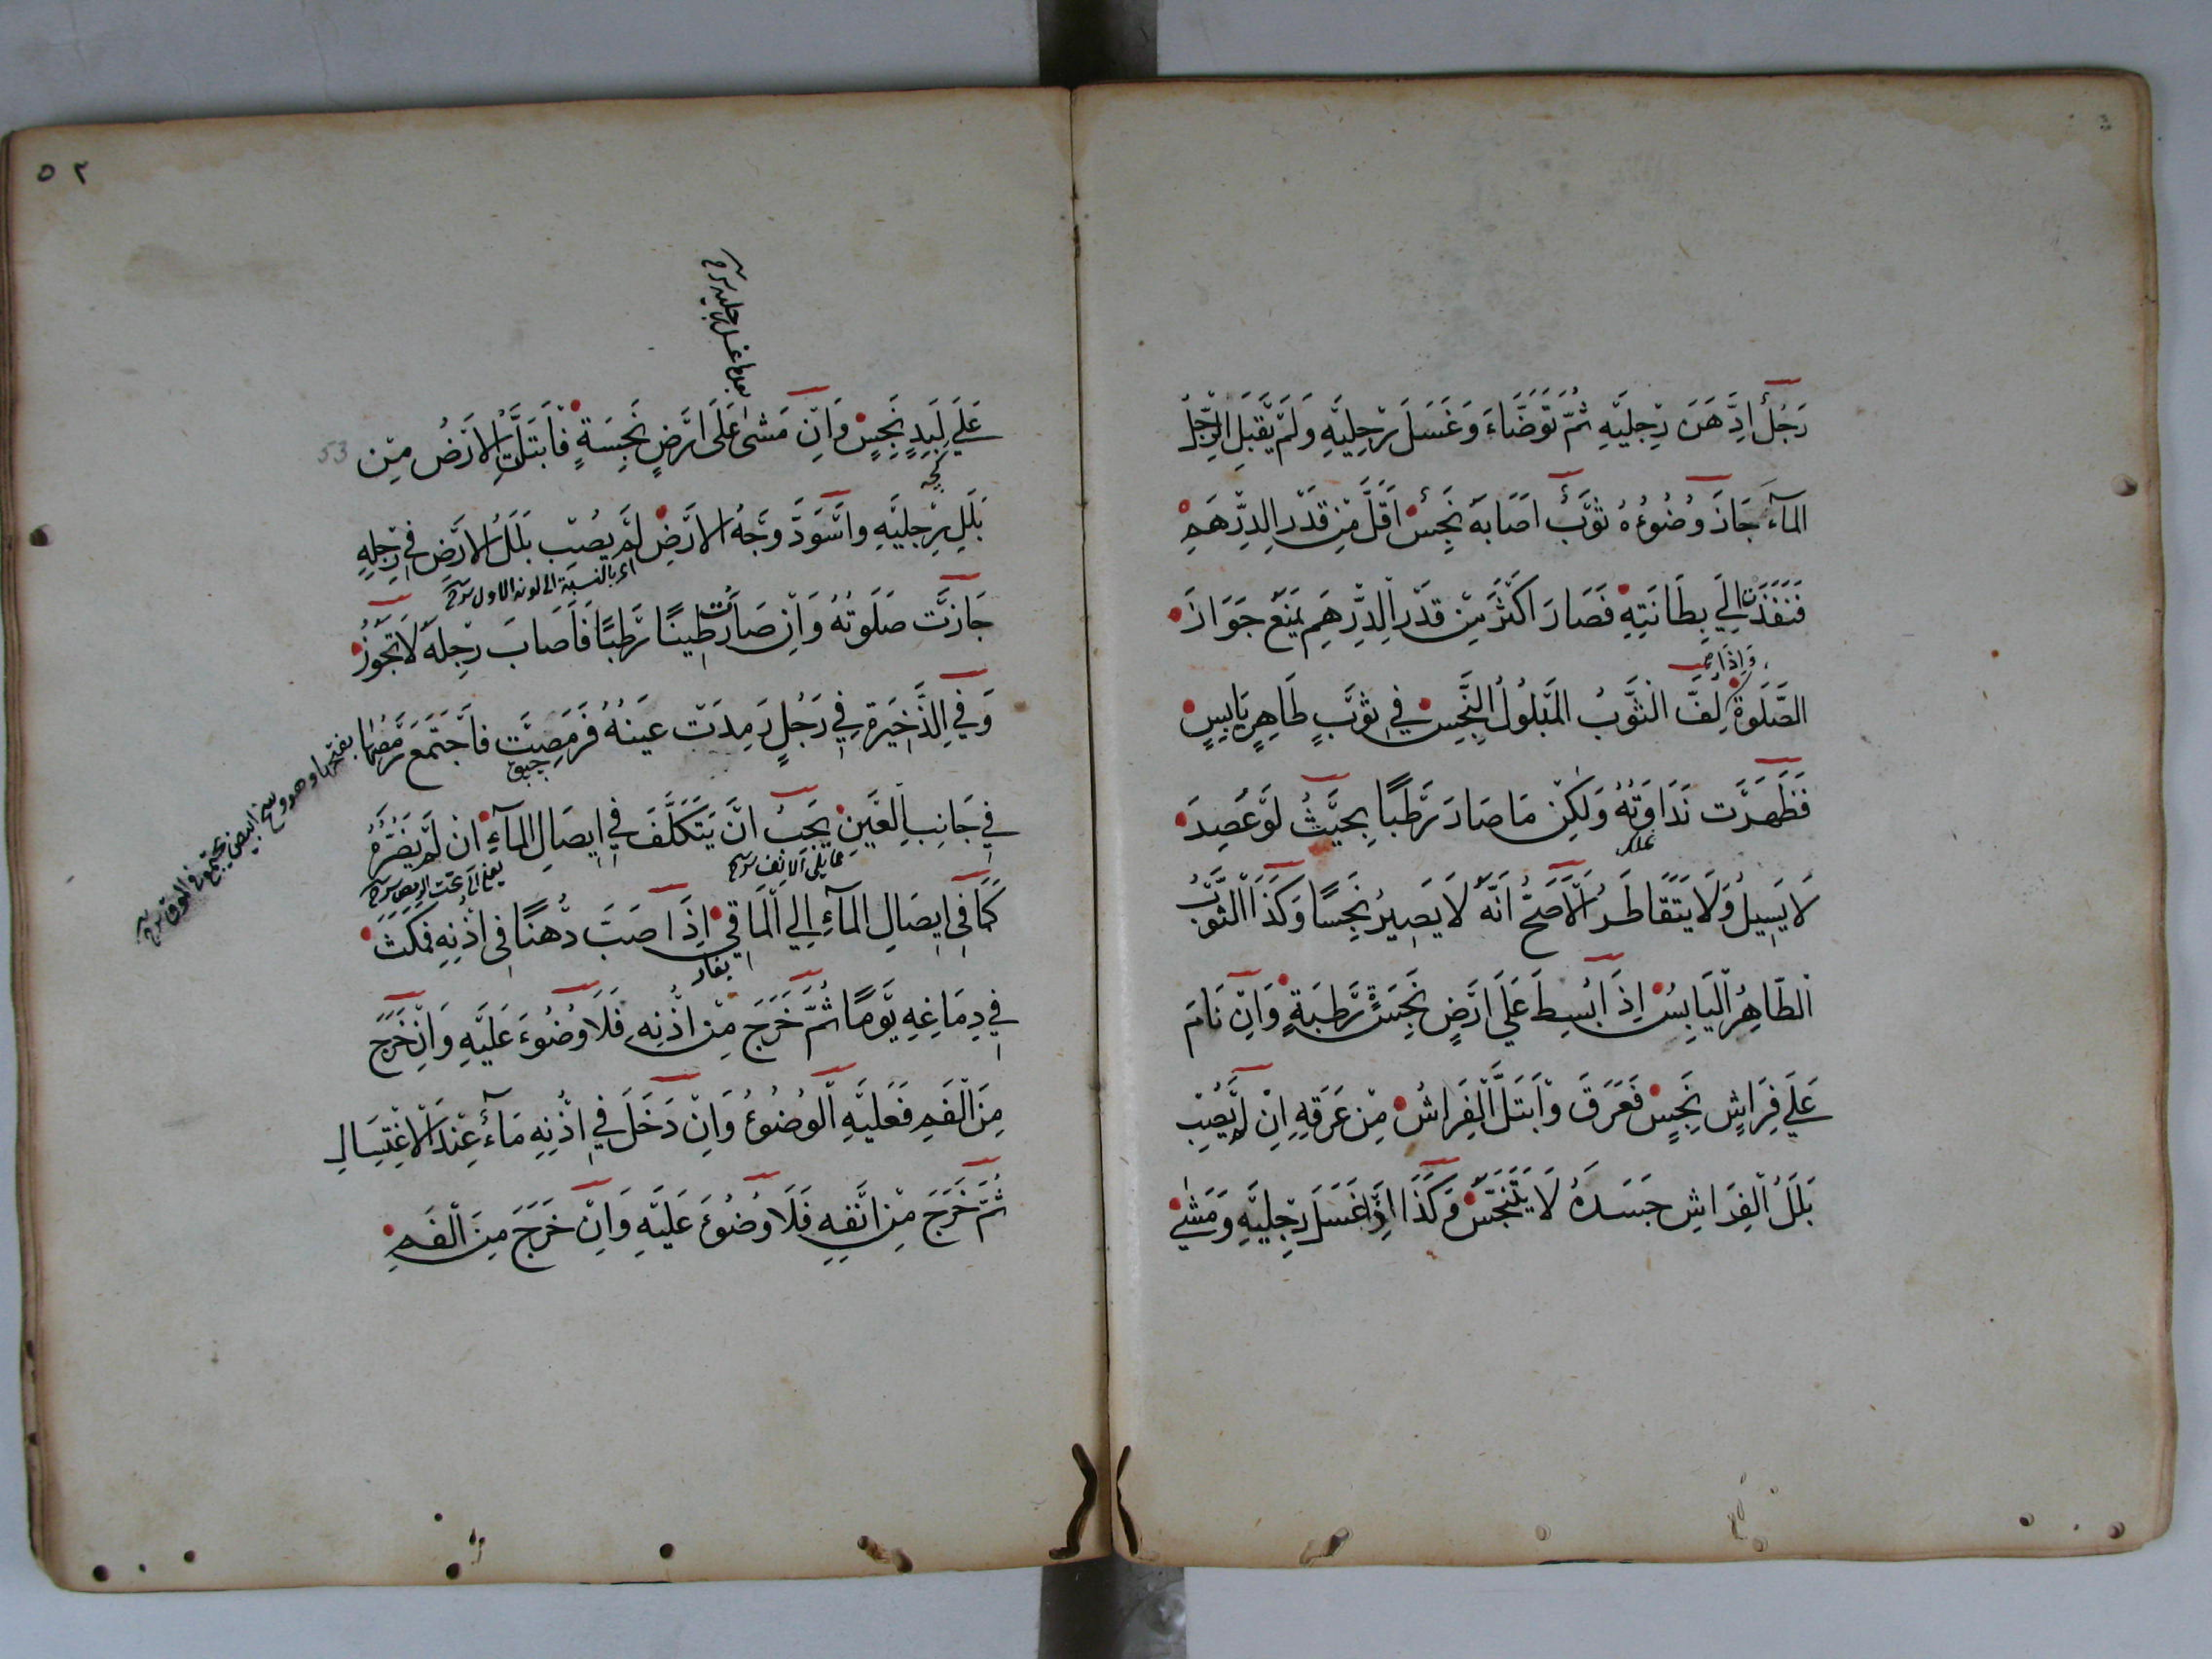 رَجُلٌ اِدَّهَنَ رِجْلَيْهِ ثُمَّ تَوَضَّاءَ وَغَسَلَ رِجْلَيْهِ وَلَمْ يَقْبَلِ الرِّجْلُ
المآءَ جَازَ وُضُوُءُهُ ثَوْبٌ اَصَابَهُ نَجِسٌ اَقَلُّ مِنْ قَدْرِ الدِّرْهَمِ
فَنَفَذَتْ اِلَي بِطَانَتِهِ فَصَارَ اَكْثَرَ مِنْ قَدْرِ الدِّرْهَمِ يَمْنَعُ جَوَازَ
وَاِذَا صح
الصَّلَوةِ لُفَّ الثَّوْبُ المَبْلُولُ النَّجِسُ فِي ثَوْبٍ طَاهِرٍ يَابِسٍ
فَظَهَرَتْ نَدَاوَتُهُ وَلَكِنْ مَا صَارَ رَطْبًا بِحَيْثُ لَوْ عُصِرَ
لَا يَسِيلُ وَلَا يَتَقَاطَرُ اَلْاَصَحُّ اَنَّهُ لَا يَصِيرُ نَجِسًا وَكَذَا الثَّوْبُ
الطَّاهِرُ الْيَابِسُ اِذَا بُسِطَ عَلَي اَرْضٍ نَجِسَةٍ رَطْبَةٍ وَاِنْ نَامَ
عَلَي فِرَاشٍ نَجِسٍ فَعَرَقَ وَابْتَلَّ الْفِرَاشُ مِنْ عَرَقِهِ اِنْ لَمْ يُصِبْ
بَلَلُ الْفِرَاشِ جَسَدَهُ لَا يَتَنَجَّسُ وَكَذَا اِذَا غَسَلَ رِجْلَيْهِ وَمَشَي
٥٢
بعد ما غسل رجليه شرح
عَلَي لِبَدٍ نَجِسٍ وَاِنْ مَشَى عَلَى اَرْضٍ نَجِسَةٍ فَابْتَلَّتِ الْاَرْضُ مِنْ
53
كچه
بَلَلِ رِجْلَيْهِ وَاسْوَدَّ وَجْهُ الْاَرْضِ لَمْ يُصِبْ بَلَلُ الْاَرْضِ فِي رِجْلِهِ
اى بالنسبة الى لونه الاول شرح
جَازَتْ صَلَوتُهُ وَاِنْ صَارَتْ طِينًا رَطْبًا فَاَصَابَ رِجْلَهُ لَا تَجُوزُ
وَفِي الذَّخِيرَةِ فِي رَجُلٍ رَمِدَتْ عَيْنُهُ فَرَمِصَتْ فَاجْتَمَعَ رَمَصُهَا
بفتحها وهو وسخ ابيض يجتمع في الموق شرح
فِي جَانِبِ الْعَيْنِ يَجِبُ اَنْ يَتَكَلَّفَ فِي اِيصَالِ المآءِ اِنْ لَمْ يَضُرَّهُ
مما يلي الانف شرح
يعني الى تحت الرمص شرح
كَمَا فِي اِيصَالِ المآءِ اِلَي الْمَاقِي اِذَا صَبَّ دُهْنًا فِي اُذْنِهِ فَمَكَثَ
فِي دِمَاغِهِ يَوْمًا ثُمَّ خَرَجَ مِنْ اُذْنِهِ فَلَا وُضُوءَ عَلَيْهِ وَاِنْ خَرَجَ
مِنَ الْفَمِ فَعَلَيْهِ الْوُضُوُءُ وَاِنْ دَخَلَ فِي اُذْنِهِ مَآءٌ عِنْدَ الْاِغْتِسَالِ
ثُمَّ خَرَجَ مِنْ اَنْفِهِ فَلَا وُضُوءَ عَلَيْهِ وَاِنْ خَرَجَ مِنَ الْفَمِ